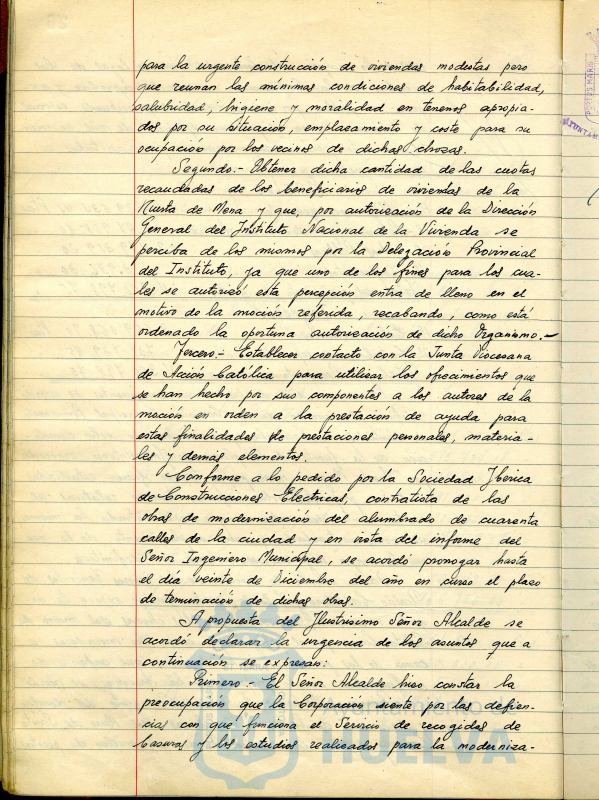 para la urgente construcción de viviendas modestas pero
que reunan las mínimas condiciones de habitabilidad,
salubridad, higiene y moralidad en terrenos apropia-
dos por su situación, emplazamiento y coste para su
ocupación por los vecinos de dichas chozas.
Segundo.- Obtener dicha cantidad de las cuotas
recaudadas de los beneficiarios de viviendas de la
Huerta de Mena y que, por autorización de la Dirección
General del Instituto Nacional de la Vivienda se
perciba de los mismos por la Delegación Provincial
del Instituto, ya que uno de los fines para los cua-
les se autorizó esta percepción entra de lleno en el
motivo de la moción referida, recabando, como está
ordenado la oportuna autorización de dicho Organismo.-
Tercero.- Establecer contacto con la Junta Diocesana
de Acción Católica para utilizar los ofrecimientos que
se han hecho por sus componentes a los autores de la
moción en orden a la prestación de ayuda para
estas finalidades de prestaciones personales, materia-
les y demás elementos.
Conforme a lo pedido por la Sociedad Ibérica
de Construcciones Eléctricas, contratista de las
obras de modernización del alumbrado de cuarenta
calles de la ciudad y en vista del informe del
Señor Ingeniero Municipal, se acordó prorrogar hasta
el día veinte de Diciembre del año en curso el plazo
de terminación de dichas obras.
A propuesta del Ilustrísimo Señor Alcalde se
acordó declarar la urgencia de los asuntos que a
continuación se expresan:
Primero.- El Señor Alcalde hizo constar la
preocupación que la Corporación siente por las deficien-
cias con que funciona el Servicio de recogidas de
basuras y los estudios realizados para la moderniza-
HUELVA